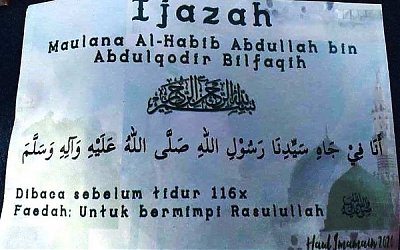 Ijazah
Maulana Al-Habib Abdullah bin
Abdulqodir Bilfaqih
بِسْمِ اللهِ الرَّحْمٰنِ الرَّحِيْمِ
أَنَا فِيْ جَاهِ سَيِّدِنَا رَسُوْلِ اللهِ صَلَّى اللهُ عَلَيْهِ وَآلِهِ وَسَلَّمَ
Dibaca sebelum tidur 116x
Faedah: Untuk bermimpi Rasulullah
Haul Imamain